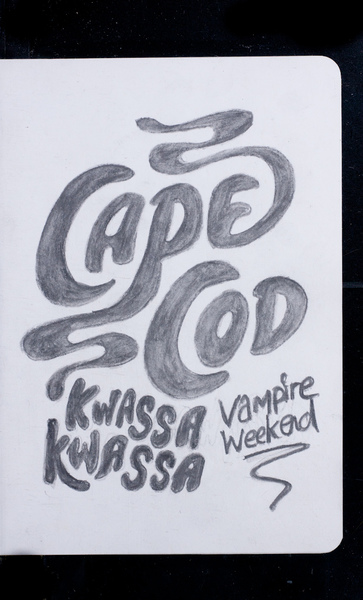 CAPE
COD
KWASSA
KWASSA
Vampire
Weekend